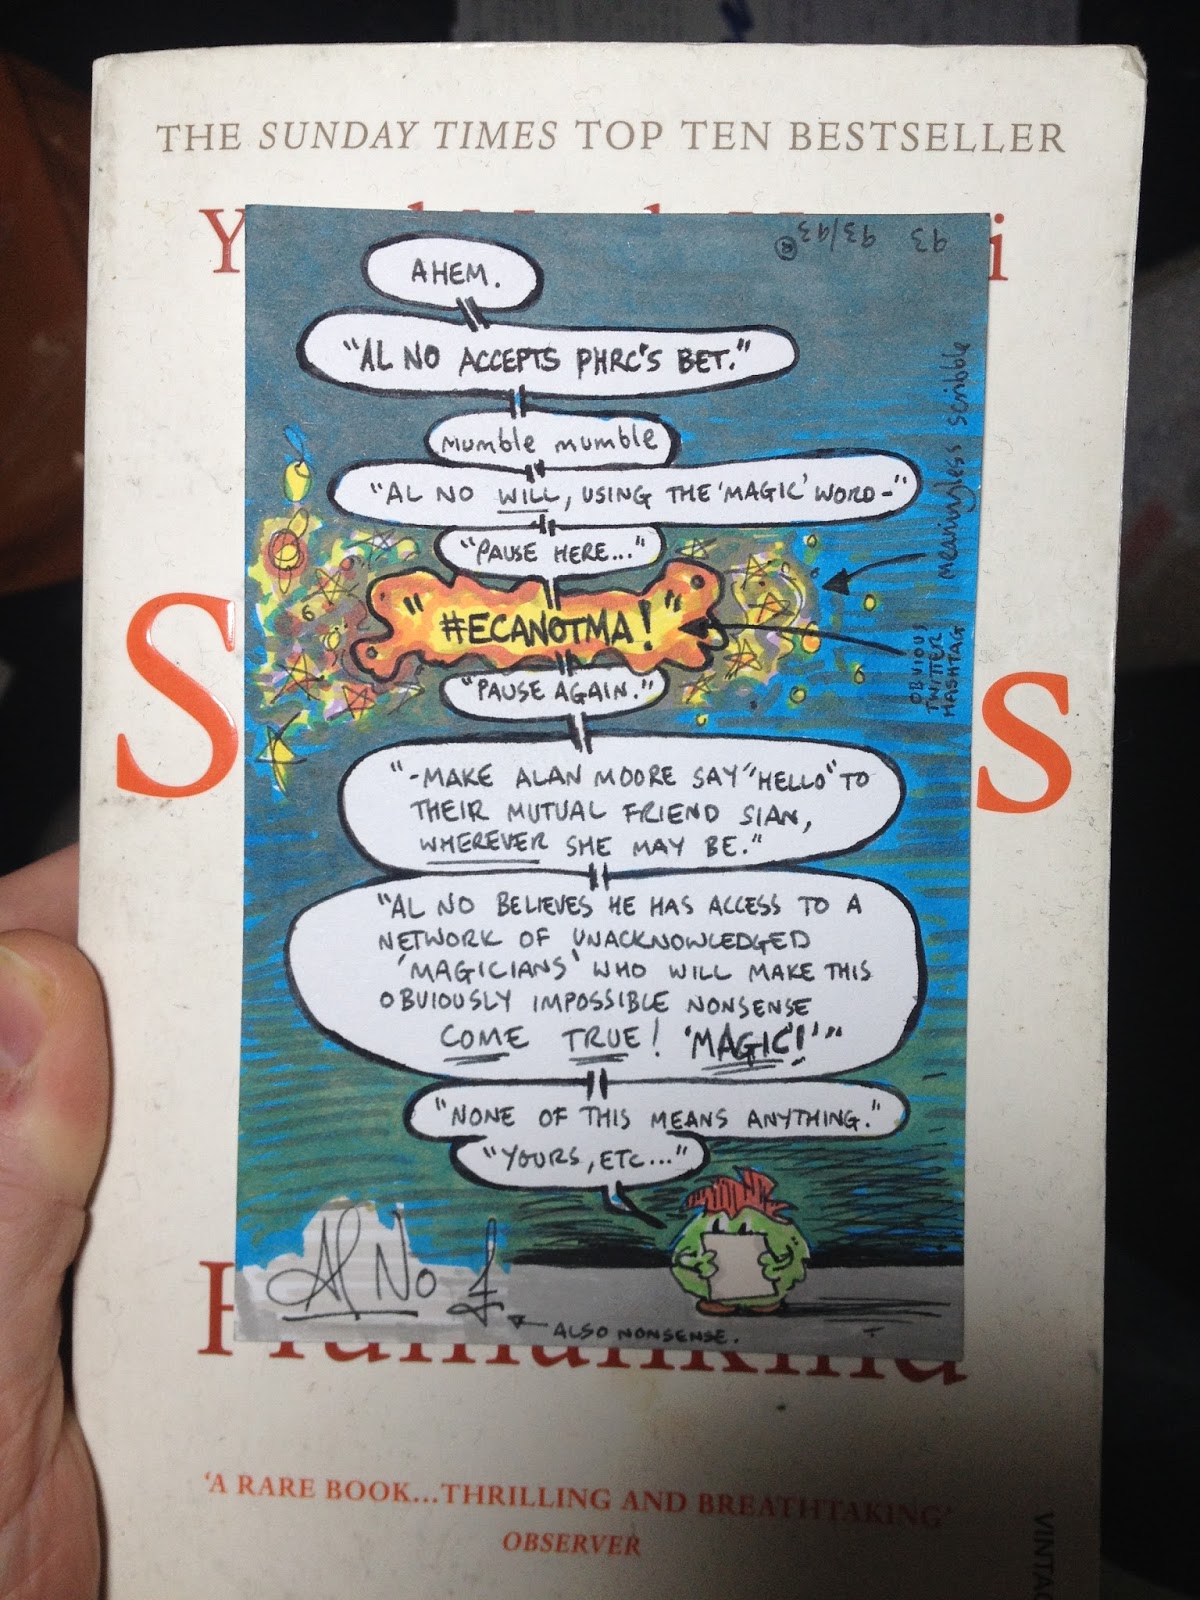 THE SUNDAY TIMES TOP TEN BESTSELLER
Y
i
93 93/93 ®
AHEM.
"AL NO ACCEPTS PHRC'S BET."
mumble mumble
"AL NO WILL, USING THE 'MAGIC' WORD-"
"PAUSE HERE..."
"#ECANOTMA!"
"PAUSE AGAIN."
meaningless scribble
OBVIOUS
TWITTER
HASHTAG
S
S
"-MAKE ALAN MOORE SAY "HELLO" TO
THEIR MUTUAL FRIEND SIAN,
WHEREVER SHE MAY BE."
"AL NO BELIEVES HE HAS ACCESS TO A
NETWORK OF UNACKNOWLEDGED
'MAGICIANS' WHO WILL MAKE THIS
OBVIOUSLY IMPOSSIBLE NONSENSE
COME TRUE! 'MAGIC!'"
"NONE OF THIS MEANS ANYTHING."
"YOURS, ETC..."
Al No
ALSO NONSENSE.
Humankind
'A RARE BOOK...THRILLING AND BREATHTAKING'
OBSERVER